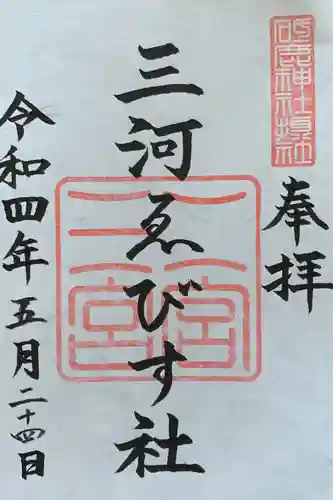 砥鹿神社境内摂社
奉拝
三河ゑびす社
三河一宮
令和四年五月二十四日